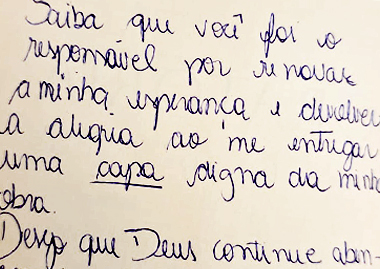 Saiba que você foi o
responsável por renovar
a minha esperança e devolveu
a alegria ao me entregar
uma capa digna da minha
obra.
Desejo que Deus continue aben-